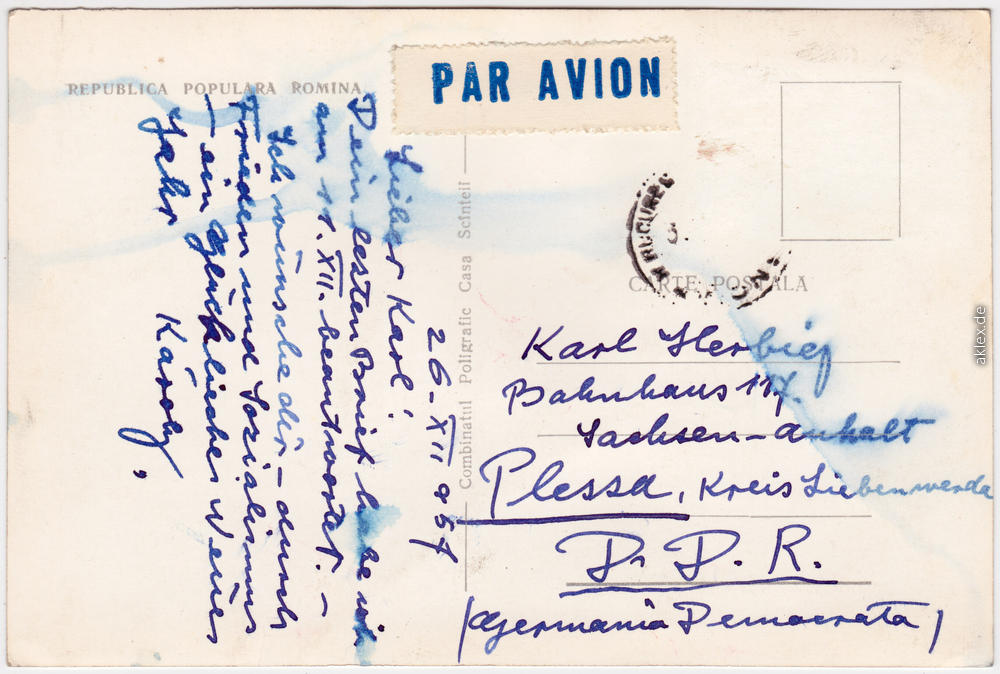 REPUBLICA POPULARA ROMINA
PAR AVION
26-XII 957
Lieber Karl!
Dein lesten Brief habe ich
am 11. XII. beantwortet. -
Ich wünsche dir - durch
Frieden und Sozialismus
- ein glückliches Neues
Jahr
Károly,
Combinatul Poligrafic Casa Scînteii
CARTE POSTALA
Karl Herbig
Bahnhaus 117.
Sachsen-anhalt
Plessa, Kreis Liebenwerda
D. D. R.
(Germania Democrata)
aklex.de